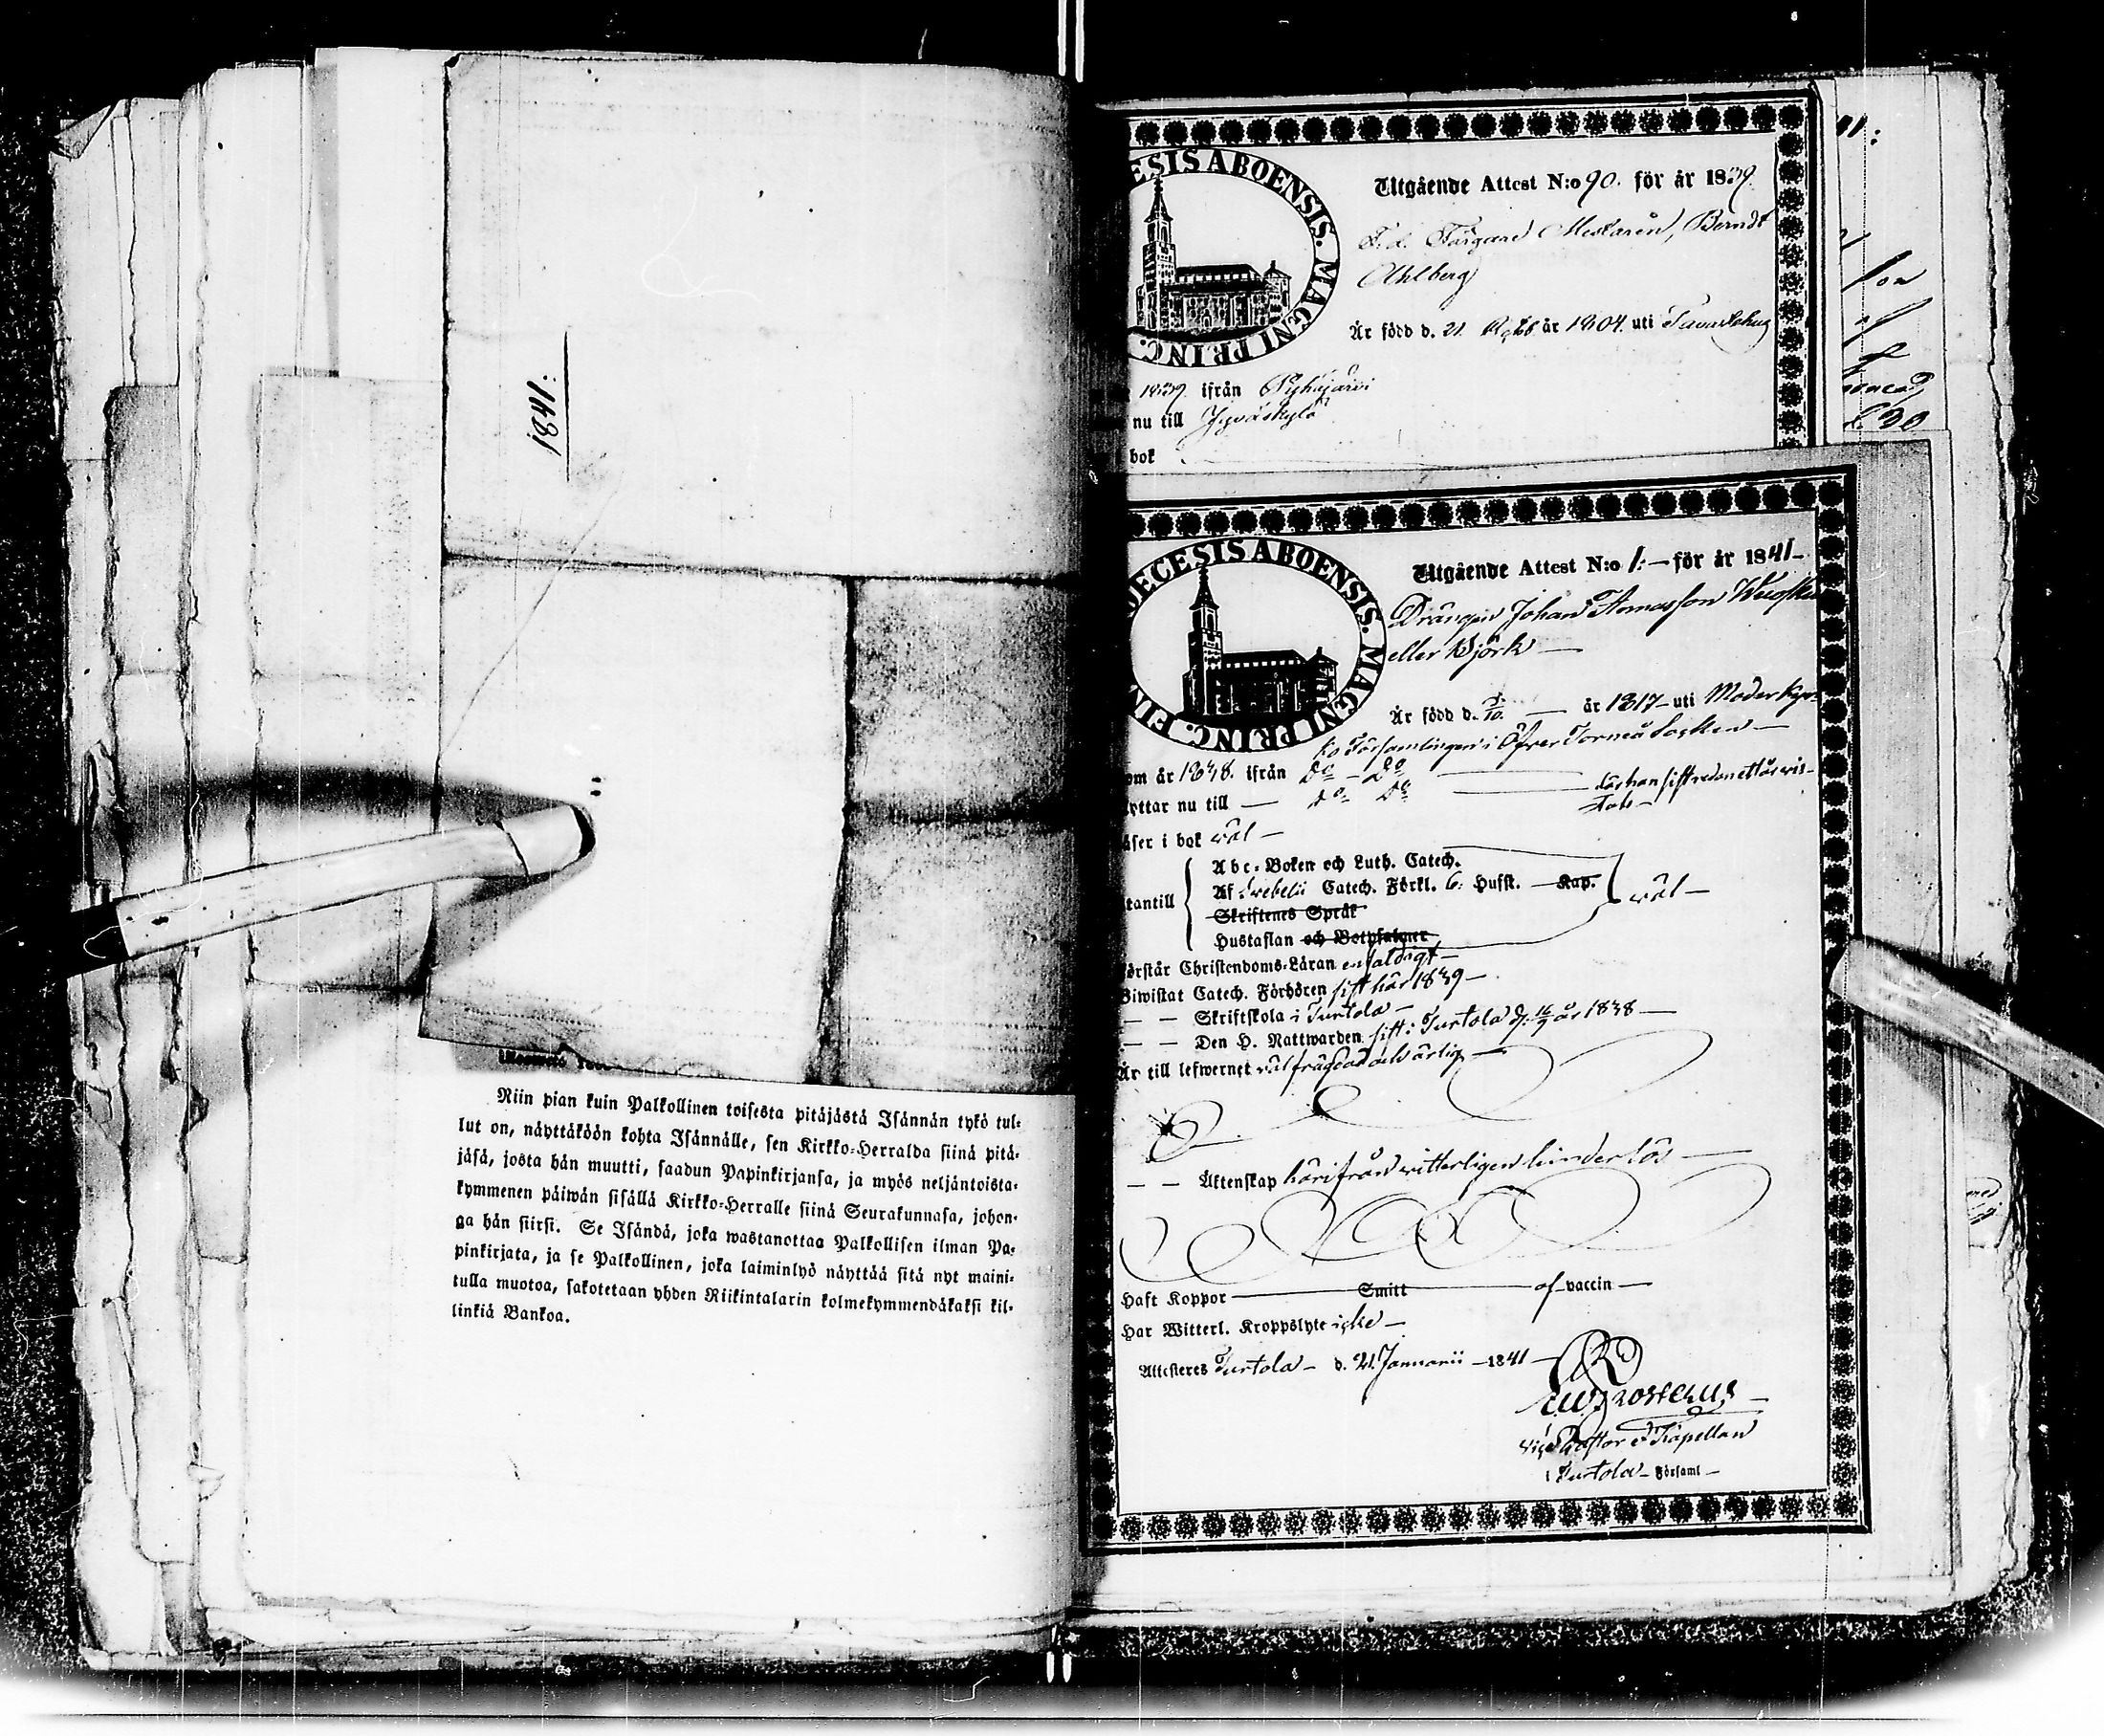 1841:
Niin pian kuin Palkollinen toisesta pitäjästä Isännän tykö tul-
lut on, näyttäköön kohta Isännälle, sen Kirkko-Herralda siinä pitä-
jäsä, josta hän muutti, saadun Papinkirjansa, ja myös neljäntoista-
kymmenen päiwän sisällä Kirkko-Herralle siinä Seurakunnasa, johon-
ga hän siirsi. Se Isändä, joka wastanottaa Palkollisen ilman Pa-
pinkirjata, ja se Palkollinen, joka laiminlyö näyttää sitä nyt maini-
tulla muotoa, sakotetaan yhden Riikintalarin kolmekymmendäkaksi kil-
linkiä Bankoa.
ECESIS ABOENSIS. MAGNI PRINC.
Utgående Attest N:o 90. för år 1839.
F.d. Färgare Mestaren, Berndt
Ahlberg
Är född d. 21 år 1804. uti Tavastehus
1839. ifrån Pyhäjärvi
nu till Jyväskylä
bok
DECESIS ABOENSIS. MAGNI PRINC. FIN
Utgående Attest N:o 1:– för år 1841–
Drängen Johan Thomasson
eller Björk —
Är född d. 3/10. — år 1817– uti Moderkyr-
ko Församlingen i Öfver Torneå Socken —
om år 1838. ifrån Do – Do
yttar nu till — Do Do — där han sist redan etlös vis-
tats —
äser i bok väl —
tantill
Abc-Boken och Luth. Catech.
Af Svebelii Catech. Förkl. 6. Hufst. — Kap.
Skriftenes Språk
Hustaflan och Botpsalmer
väl —
örstår Christendoms-Läran enfaldigt —
Biwistat Catech. Förhören sist här 1839 —
— — Skriftskola i Turtola —
— — Den H. Nattwarden sist i Turtola d. 16/9 år 1838 —
Är till lefwernet välfrägdad och ärlig —
— — Äktenskap härifrån witterligen hinderlös —
Haft Koppor — Smitt — af vaccin —
Har Witterl. Kroppslyte icke —
Attesteres Turtola – d. 21. Januarii – 1841 —
Vice Pastor & Kapellan
i Turtola – Församl –